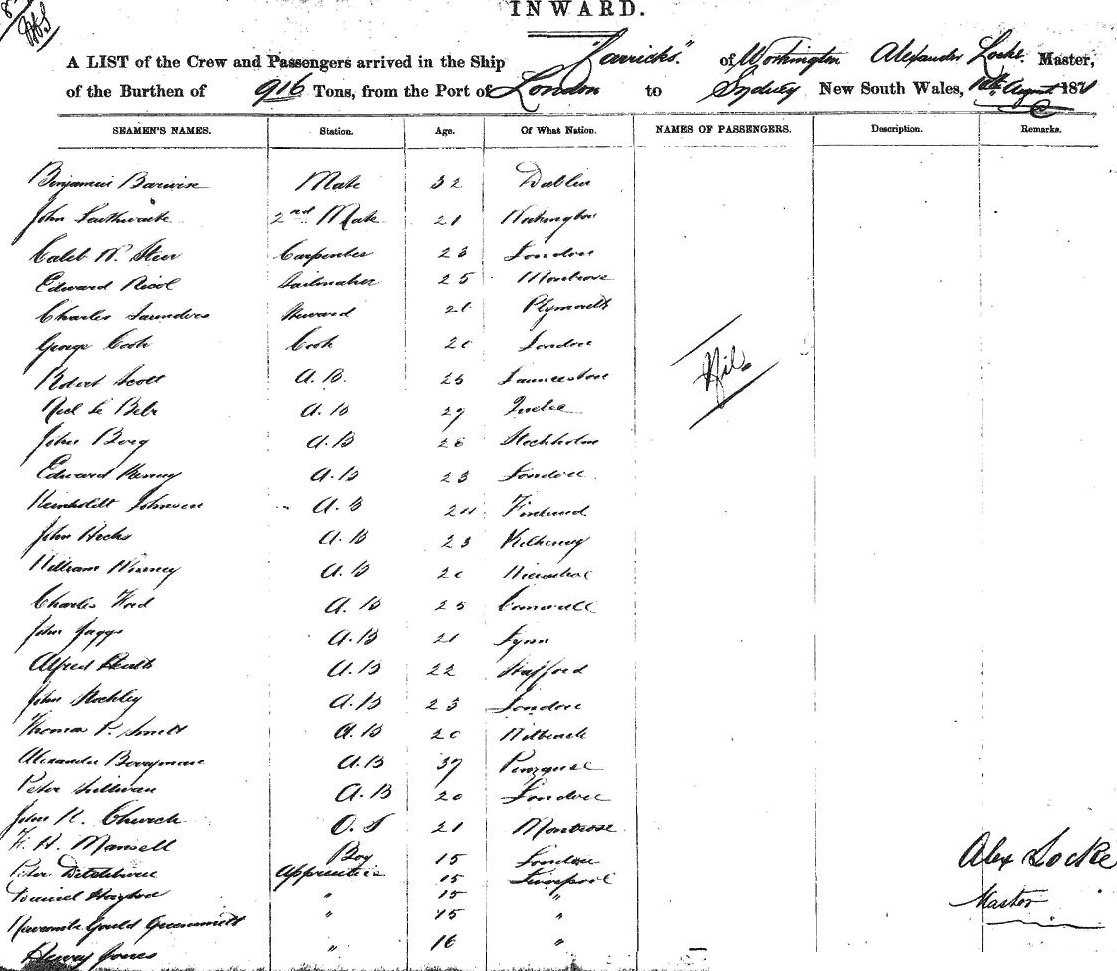 INWARD.
A LIST of the Crew and Passengers arrived in the Ship "Carricks" of Workington Alexander Locke Master,
of the Burthen of 916 Tons, from the Port of London to Sydney New South Wales, August 1871
SEAMEN'S NAMES. Station. Age. Of What Nation. NAMES OF PASSENGERS. Description. Remarks.
Benjamin Barwise Mate 32 Dublin
John 2nd Mate 21 Workington
Caleb Carpenter 23 London
Edward Nicol Sailmaker 25 Montrose
Charles Saunders Steward Plymouth
George Cook Cook London
Robert Scott A.B. 25 Launceston
A.B 29
John Borg A.B Stockholm
Nil.
Edward A.B 23 London
Johnson A.B Finland
John Hicks A.B 23 Kilkenny
William A.B
Charles Ford A.B 25 Cornwall
John Jaggs A.B 21 Lynn
Alfred A.B 22 Stafford
John Stockley A.B 23 London
Thomas P. A.B
Alexander Berryman A.B 39 Penzance
Peter Sullivan A.B 20 London
John R. Church O.S 21 Montrose
H. Mansell Boy 15 London
Apprentice 15 Liverpool
Alex Locke
Daniel " 15 "
Master
Gould " 15 "
Henry Jones " 16 "